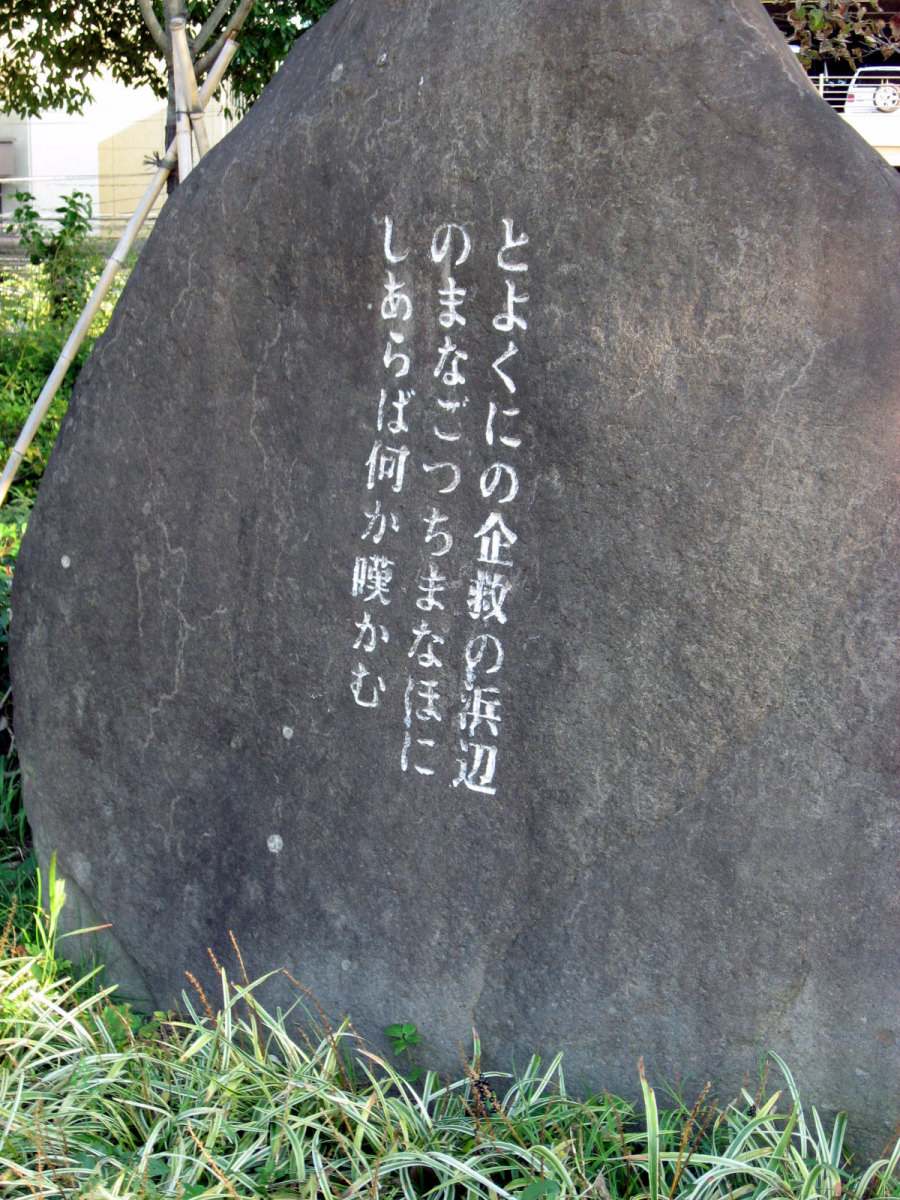 とよくにの企救の浜辺
のまなごつちまなほに
しあらば何か嘆かむ